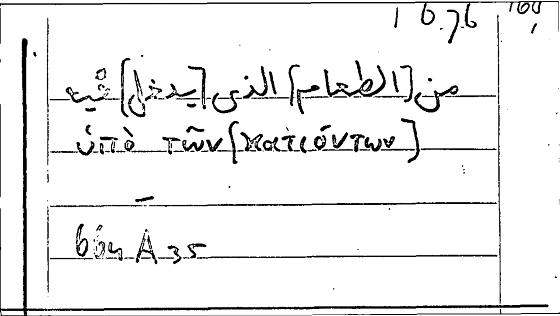 16.76
من [الطعام] الذى [يدخل] فيه
ὑπὸ τῶν [κατιόντων]
664 A 35